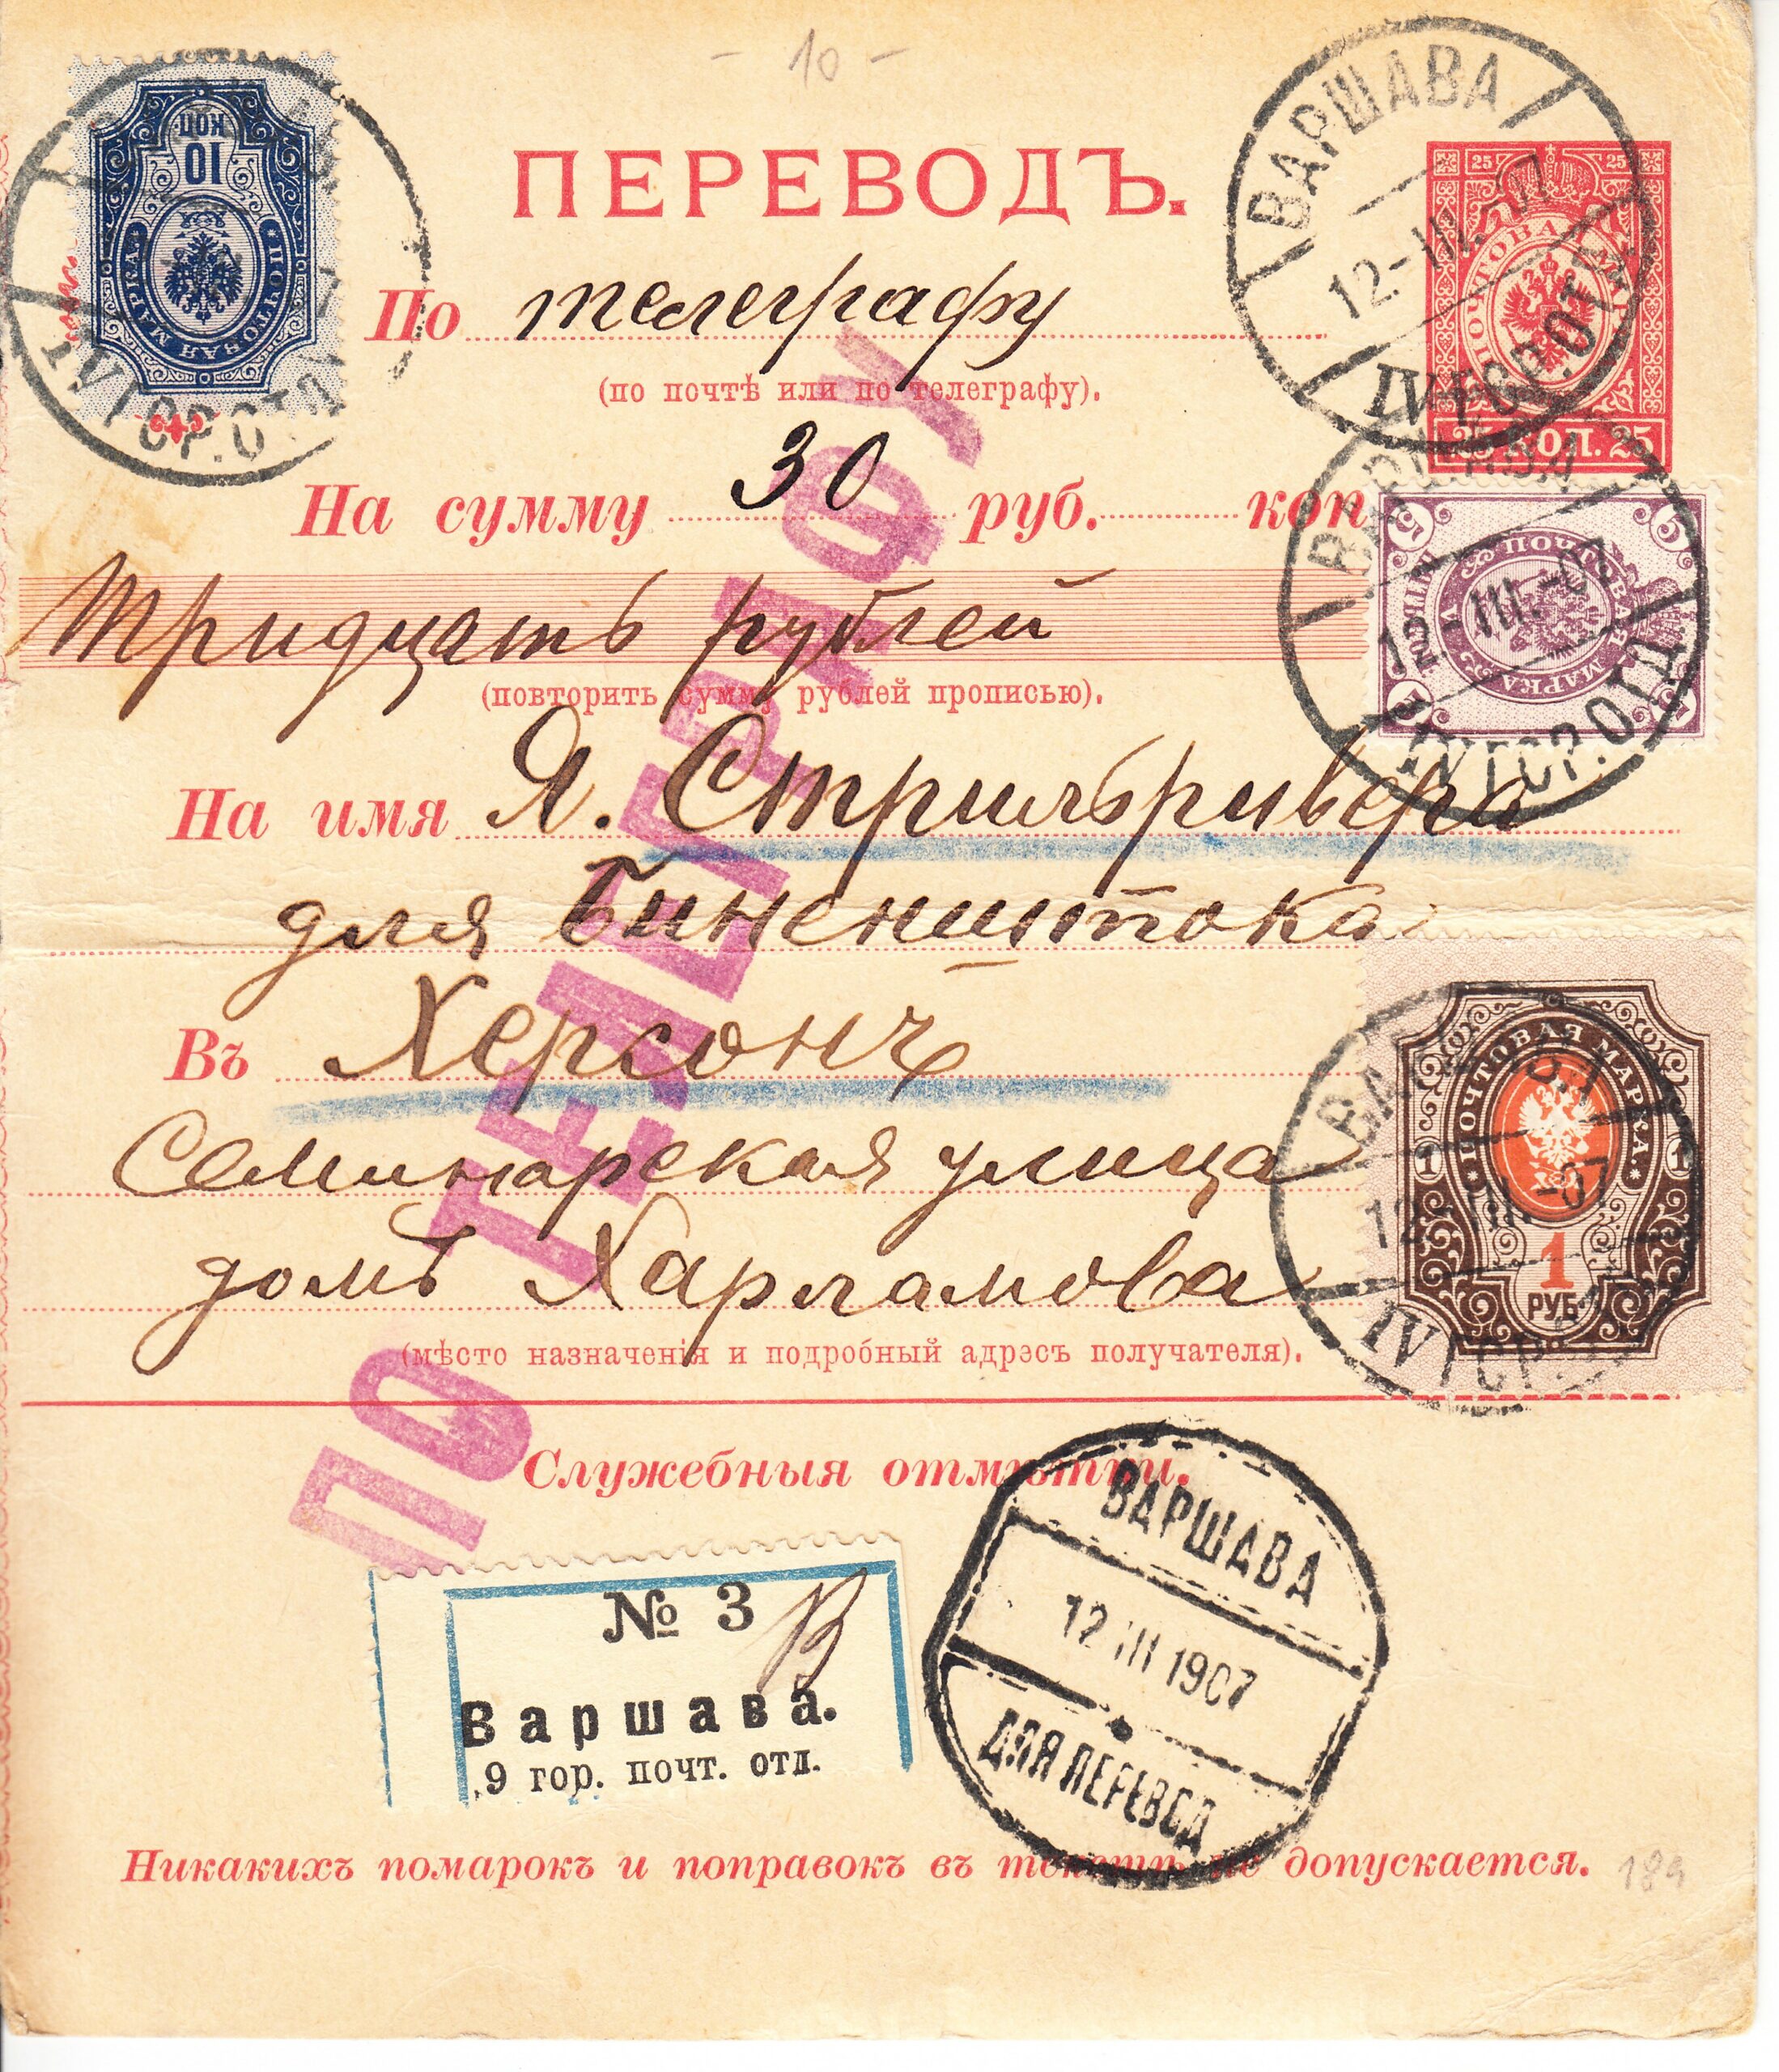 - 10 -
ПЕРЕВОДЪ.
По телеграфу
(по почтѣ или по телеграфу).
На сумму 30 руб. коп
Тридцать рублей
(повторить сумму рублей прописью).
На имя Я. Стрильривера
для Биненштока
Въ Херсонъ
Семинарская улица
домъ Харламова
(мѣсто назначенія и подробный адресъ получателя).
Служебныя отмѣтки.
№ 3
Варшава.
9 гор. почт. отд.
Никакихъ помарокъ и поправокъ въ текстѣ не допускается.
189
ПО ТЕЛЕГРАФУ
10 КОП
ПОЧТОВАЯ МАРКА
IV ГОР. ОТД.
25 25
ПОЧТОВАЯ МАРКА
25 КОП. 25
ВАРШАВА
12-III.-07
IV ГОР. ОТД.
5 5
ПОЧТОВАЯ МАРКА
5 5
ВАРШАВА
12-III.-07
IV ГОР. ОТД.
ПОЧТОВАЯ МАРКА.
1 1
1
РУБ.
ВАРШАВА
12-III-07
IV ГОР.
ВАРШАВА
12 III 1907
ДЛЯ ПЕРЕВОД